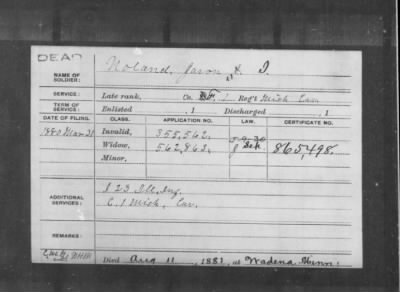 DEAD
NAME OF SOLDIER: Noland, Jason
SERVICE: Late rank, Co. 1 Reg't Mich Cav
TERM OF SERVICE: Enlisted , 1 Discharged , 1
DATE OF FILING. CLASS. APPLICATION NO. LAW. CERTIFICATE NO.
1880 Mar Invalid, 355,562,
Widow, 562,863, 865,498.
Minor,
ADDITIONAL SERVICES: I 23 Ill. Inf.
C. 1 Mich. Cav.
REMARKS:
Died Aug 11, 1881, at Wadena Minn